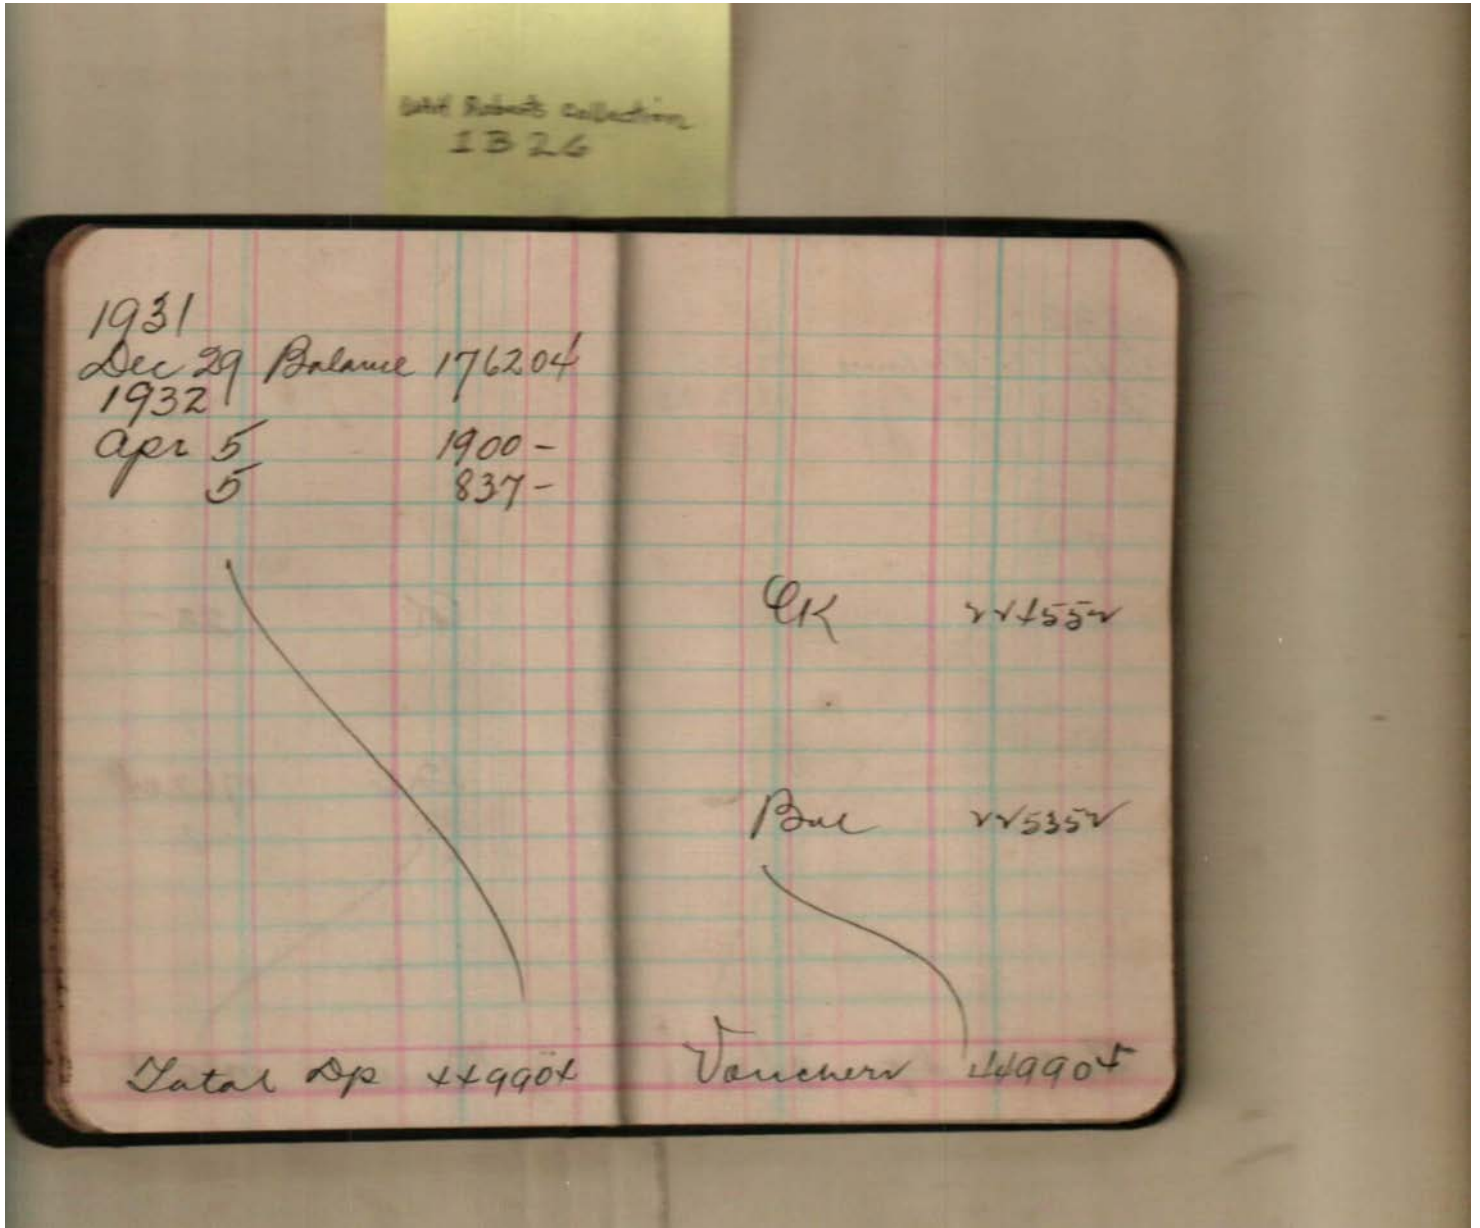 Roberts Collection
1B26
1931
Dec 29 Balance 176204
1932
Apr 5 1900 -
5 837 -
Total Dp 449904
CK 224552
Bal 225352
Vouchers 449904